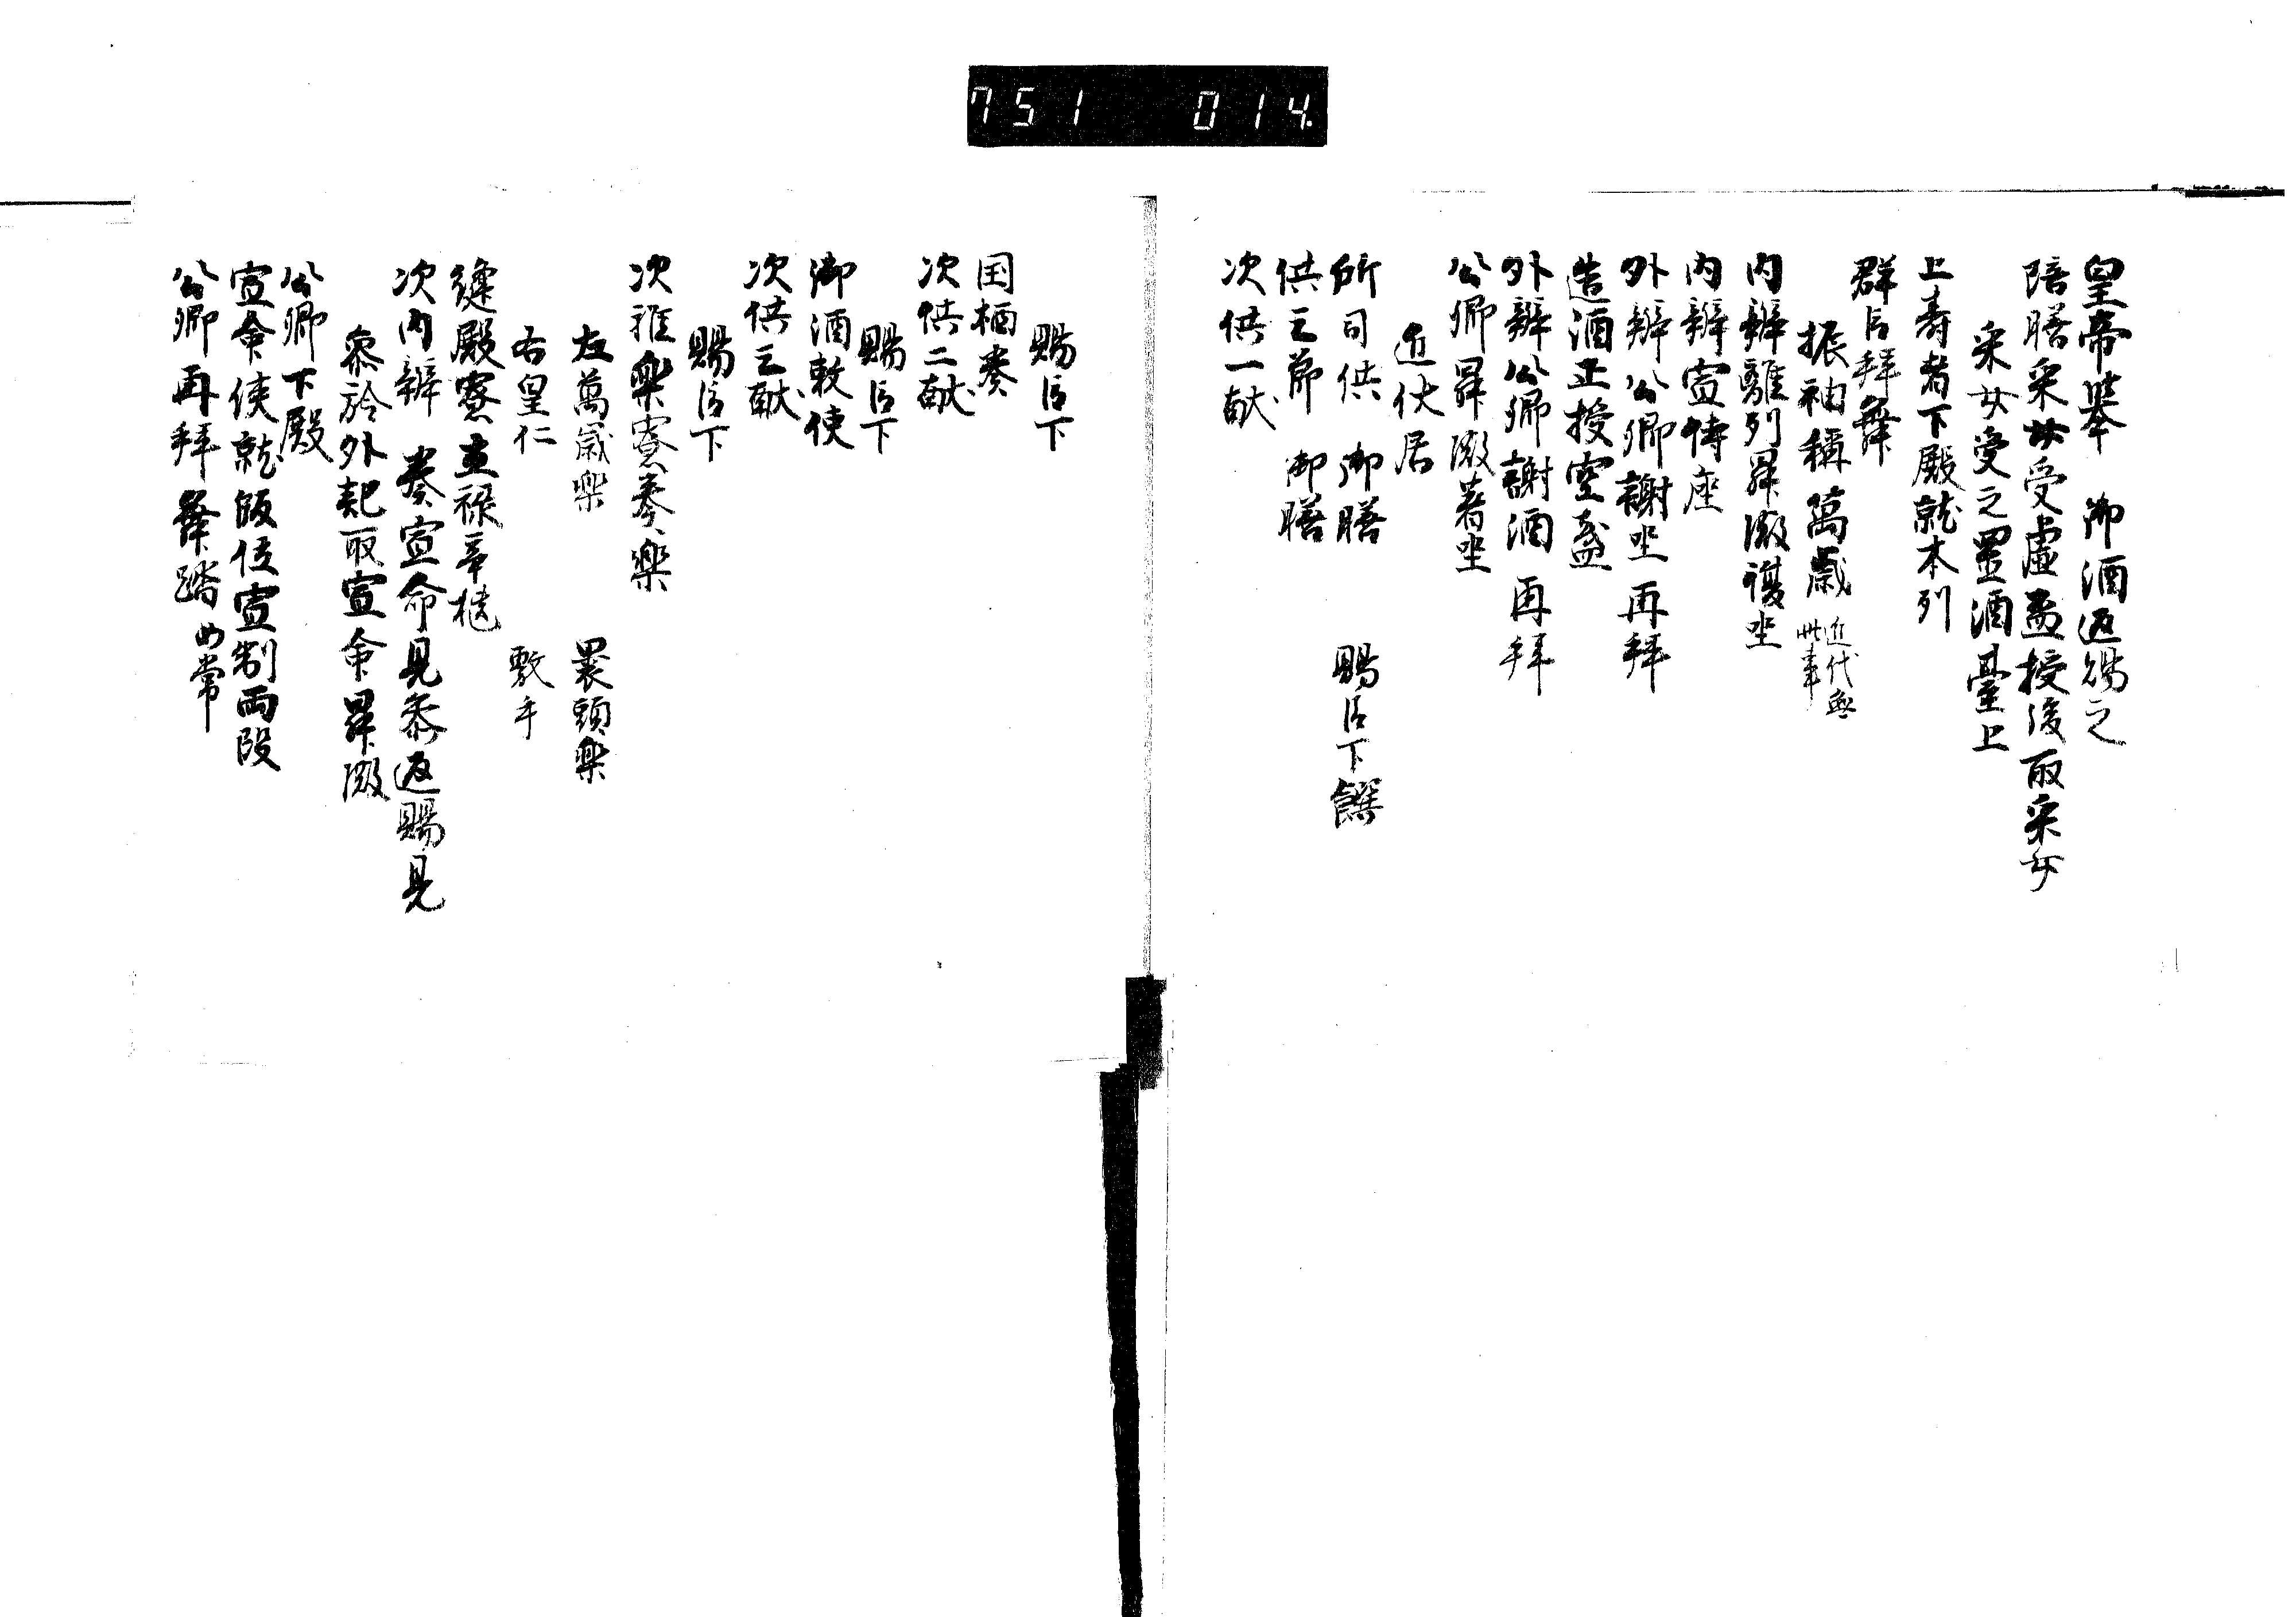 751 014
皇帝挙 御酒返賜之
陪膳采女受虚盃授後取采女
采女受之置酒臺上
上寿者下殿就本列
群臣拜舞
振袖稱萬歳 近代無此事
内辨離列昇殿復坐
内辨宣侍座
外辨公卿謝坐再拜
造酒正授空盞
外辨公卿謝酒再拜
公卿昇殿著坐
近仗居
所司供 御膳 賜臣下饌
供三節 御膳
次供一献
賜臣下
国栖奏
次供二献
賜臣下
御酒敕使
次供三献
賜臣下
次雅樂寮奏樂
左萬歳樂 裹頭樂
右皇仁 敷手
縫殿寮立禄辛櫃
次内辨 奏宣命見参返賜見
参於外記取宣命昇殿
公卿下殿
宣命使就版位宣制両段
公卿再拜舞踏如常